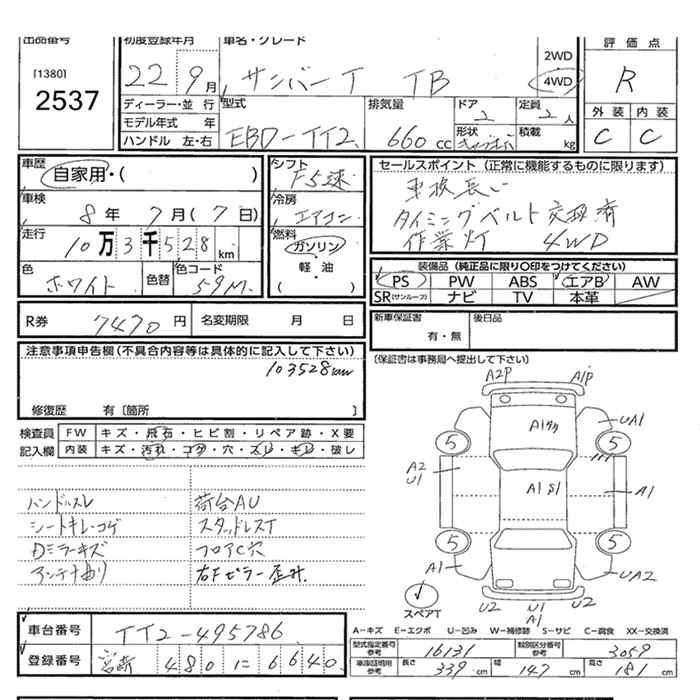 出品番号
[1380]
2537
初度登録年月
22 9月
車名・グレード
サンバーT TB
2WD
4WD
評価点
R
外装 内装
C C
ディーラー・並行
モデル年式 年
ハンドル 左・右
型式
EBD-TT2
排気量
660 cc
ドア
2
形状
定員
2 人
積載
kg
車歴
自家用・( )
車検
8年 7月(7日)
走行
10万3千528km
色
ホワイト
色替
色コード
59M
シフト
F5速
冷房
エアコン
燃料
ガソリン
・
軽・油
( )
セールスポイント (正常に機能するものに限ります)
車検長い
タイミングベルト交換済
作業灯 4WD
装備品 (純正品に限り〇印をつけてください)
PS PW ABS エアB AW
SR(サンルーフ) ナビ TV 本革
R券 7470円 名変期限 月 日
新車保証書
有・無
後日品
注意事項申告欄(不具合内容等は具体的に記入して下さい)
103528km
修復歴 有〔箇所 〕
(保証書は事務局へ提出して下さい)
検査員 FW キズ・飛石・ヒビ割・リペア跡・X要
記入欄 内装 キズ・汚れ・コゲ・穴・スレ・キレ・破レ
ハンドルスレ 荷台AU
シートキレ・コゲ スタッドレスT
Dミラーキズ フロアC穴
アンテナ曲り 右Fピラー歪み.
A2P A1P
UA1
5 5
A2
U1
A1
A1
5 5
A1 UA2
スペアT
U2 U1 U2
A1
A-キズ E-エクボ U-凹み W-補修跡 S-サビ C-腐食 XX-交換済
車台番号 TT2-495786
登録番号 宮崎 480 に 6640
型式指定番号 参考 16131 類別区分番号 参考 3059
車庫証明用 参考 長さ 339 cm 幅 147 cm 高さ 181 cm